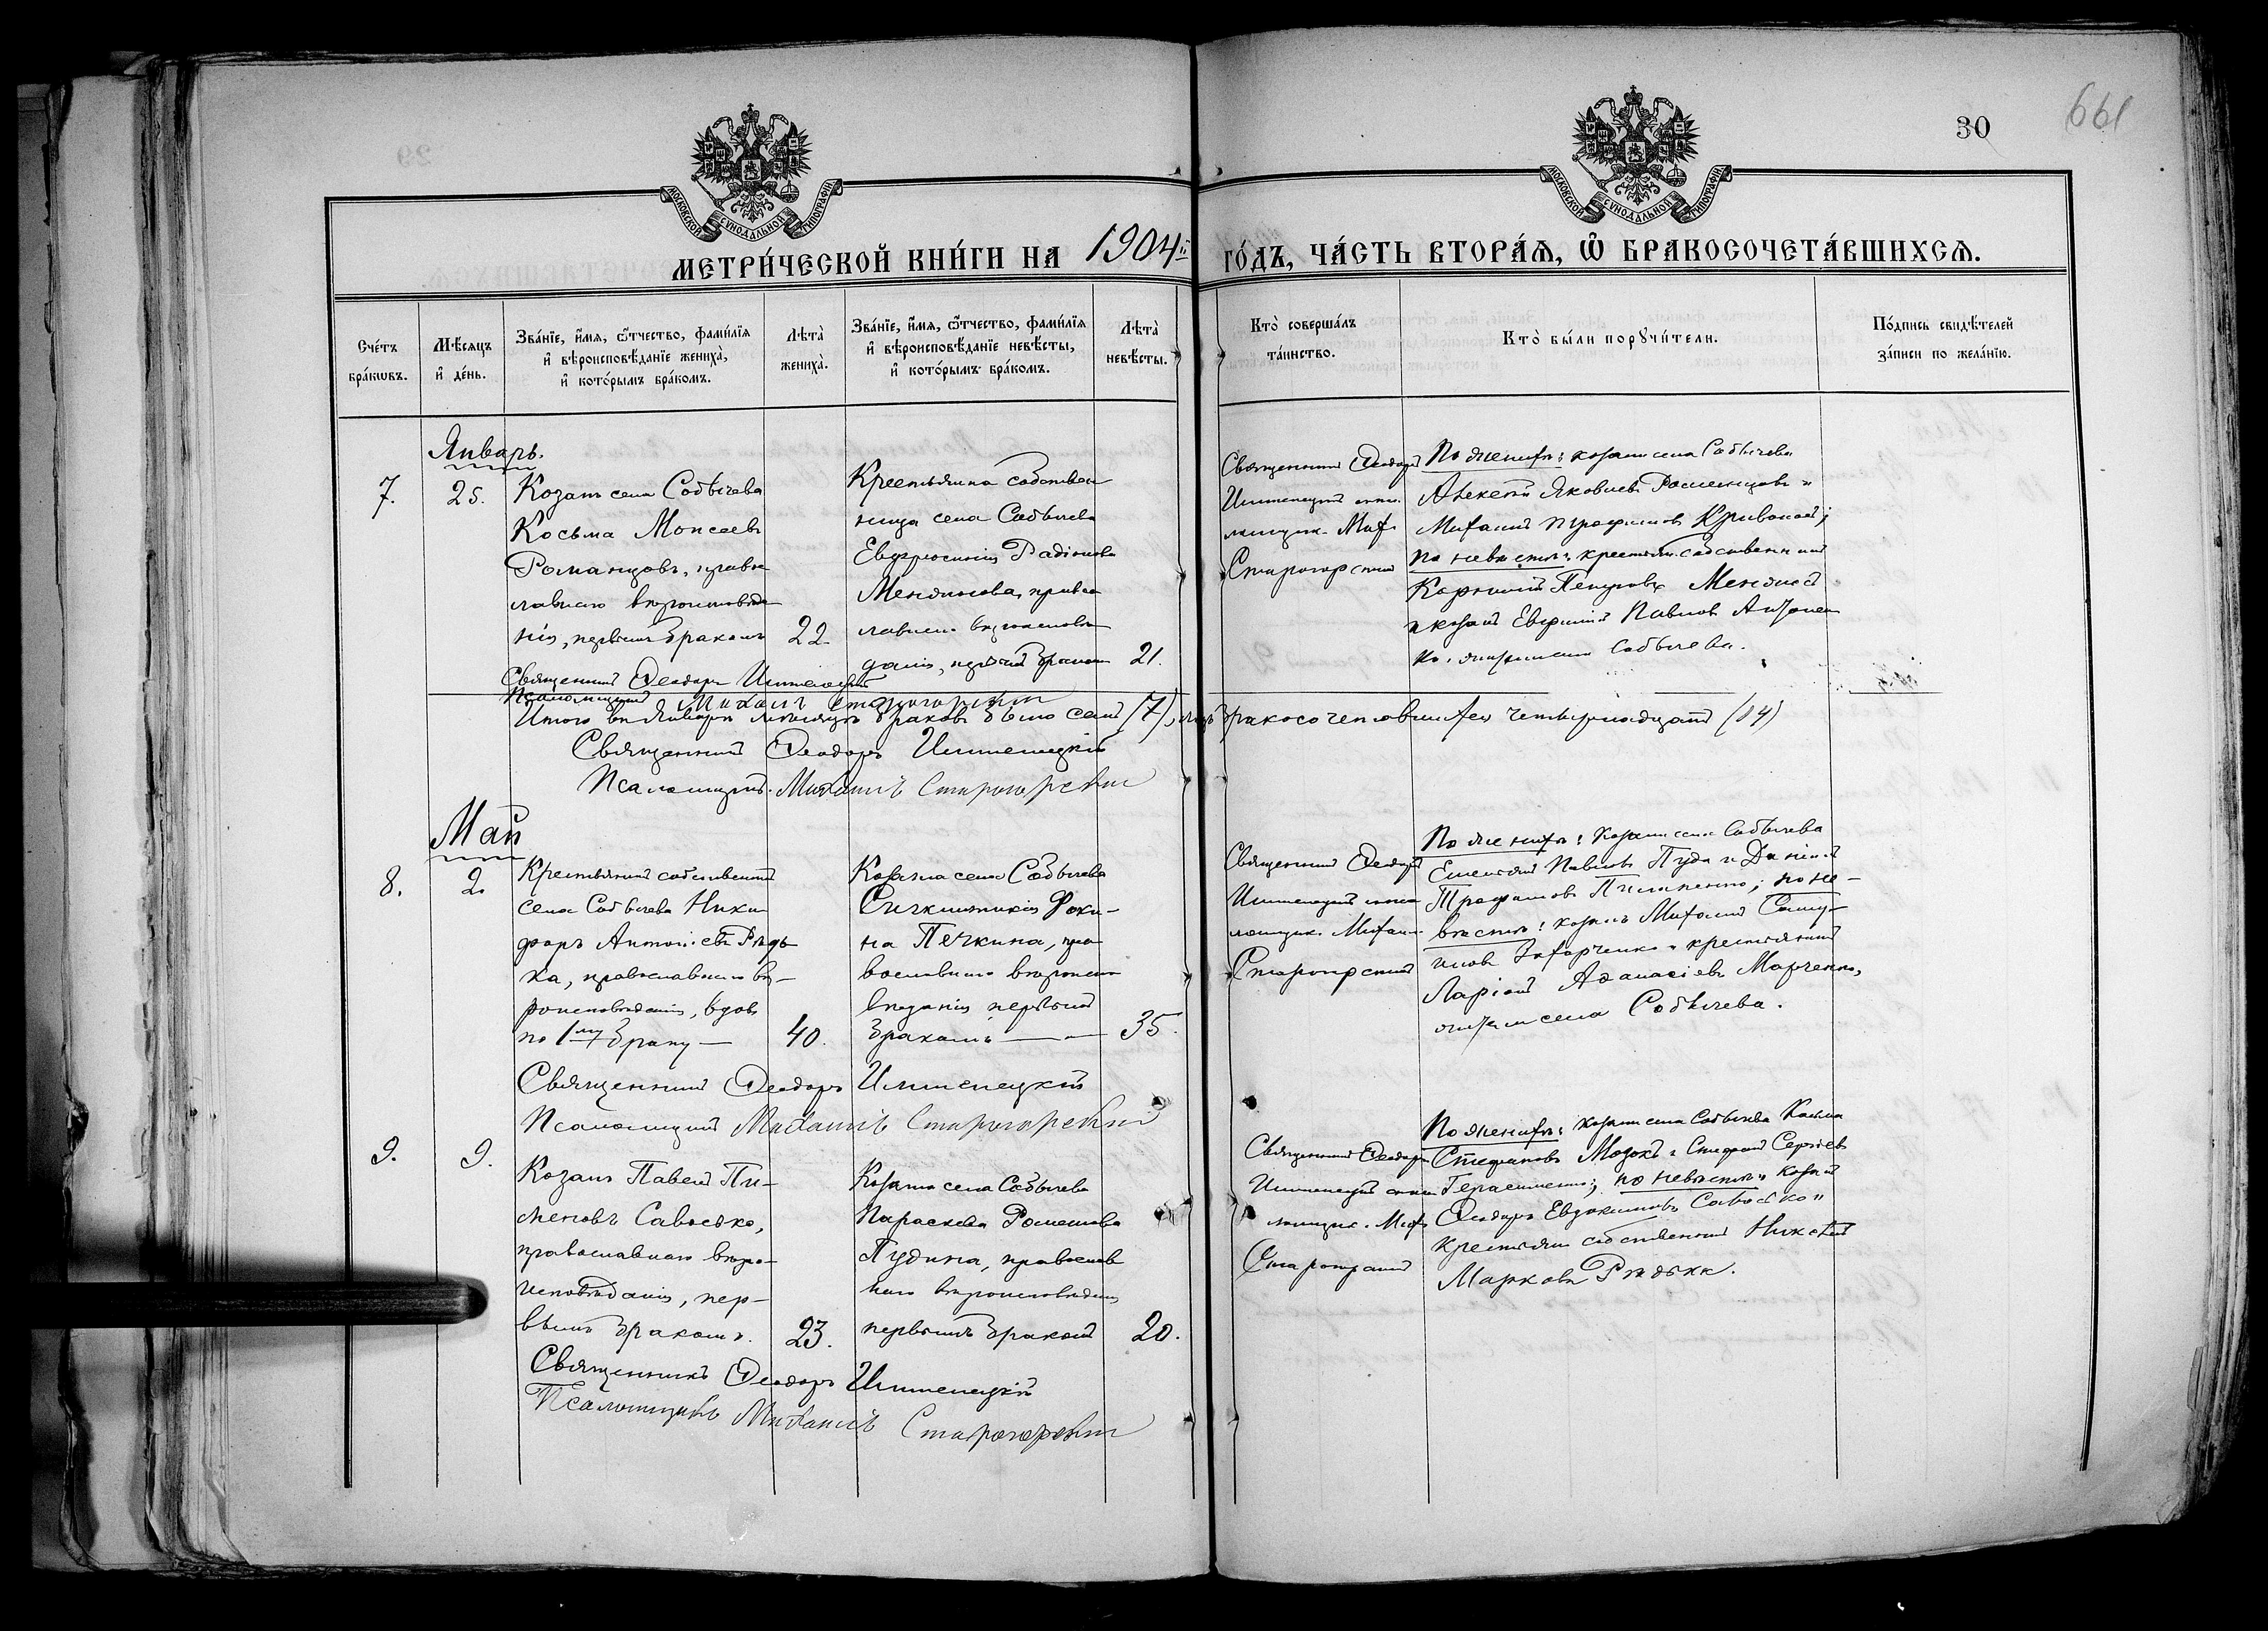 30
661
МОСКОВСКОЙ СѴНОДАЛЬНОЙ ТИПОГРАФІИ
МОСКОВСКОЙ СѴНОДАЛЬНОЙ ТИПОГРАФІИ
МЕТРИ́ЧЕСКОЙ КНИ́ГИ НА 1904й ГО́ДЪ, ЧА́СТЬ ВТОРА́Ѧ, Ѡ҆ БРАКОСОЧЕТА́ВШИХСѦ.
Сче́тъ бра́кѡвъ.
Мѣ́сѧцъ и҆ де́нь.
Зва́нїе, и҆́мѧ, ѻ҆́тчество, фами́лїѧ
и҆ вѣроисповѣ́данїе жениха̀,
и҆ кото́рымъ бра́комъ.
Лѣта̀ жениха̀.
Зва́нїе, и҆́мѧ, ѻ҆́тчество, фами́лїѧ
и҆ вѣроисповѣ́данїе невѣ́сты,
и҆ кото́рымъ бра́комъ.
Лѣта̀ невѣ́сты.
Кто̀ соверша́лъ
та́инство.
Кто̀ бы́ли порꙋчи́тели.
По́дпись свидѣ́телей
за́писи по жела́нїю.
Январь.
7.
25.
Козакъ села Собычева
Косьма Моисеевъ
Романцовъ, право
славнаго вѣроисповѣда
нія, первымъ бракомъ
22.
Крестьянка собствен
ница села Собычева
Евфросинія Радіонова
правос
лавнаго вѣроисповѣ
данія, первымъ бракомъ
21.
Священникъ Ѳеодоръ
псаломщик. Мих.
Старогорскій
По женихѣ: козаки села Собычева
Алексѣй Яковлевъ Романцовъ и
Михаилъ Трофимовъ
по невѣстѣ: крестьян. собственникъ
Корнилій Петровъ
и козакъ Евфимій Павловъ
ко, жители Собычева.
Священникъ Ѳеодоръ
Псаломщикъ Михаилъ Старогорскій
Итого въ Январѣ мѣсяцѣ браковъ было семь (7), лицъ бракосочетавшихся четырнадцать (14)
Священникъ Ѳеодоръ
Псаломщикъ Михаилъ Старогорскій
Май
8.
2.
Крестьянинъ собственникъ
села Собычева Ники
форъ Антоніевъ Рѣдь
ка, православнаго вѣ-
роисповѣданія, вдовъ
по 1му браку —
40.
Козачка села Собычева
Синклитикія Фоки-
на Печкина, пра
вославнаго вѣроиспо
вѣданія первымъ
бракомъ —
35.
Священникъ Ѳеодоръ
ломщик. Михаил
Старогорскій
По женихѣ: козаки села Собычева
Павловъ Пуда и Даніилъ
Трофимовъ Пилипенко; по не-
вѣстѣ: козакъ Михаилъ
Захарченко и крестьянинъ
Ларіонъ Аѳанасіевъ Марченко,
жители села Собычева.
Священникъ Ѳеодоръ
Псаломщикъ Михаилъ Старогорскій
9.
9.
Козакъ Павелъ Пи-
меновъ Савостко,
православнаго вѣро-
исповѣданія, пер-
вымъ бракомъ.
23.
Козачка села Собычева
Параскева Романова
Пудина, православ
наго вѣроисповѣданія
первымъ бракомъ
20.
Священникъ Ѳеодоръ
ломщик. Мих
Старогорскій
По женихѣ: козаки села Собычева Косьма
Стефановъ Мозокъ и Стефанъ Сергіевъ
Герасименко; по невѣстѣ: козакъ
Ѳеодоръ Евдокимовъ Савостко и
крестьян собственникъ
Марковъ Рѣдька.
Священникъ Ѳеодоръ
Псаломщикъ Михаилъ Старогорскій